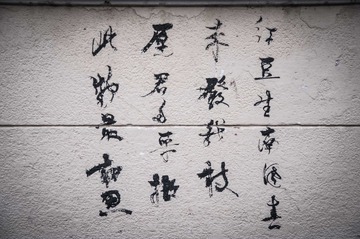 红豆生南國春
来發幾枝
愿君多采擷
此物最相思